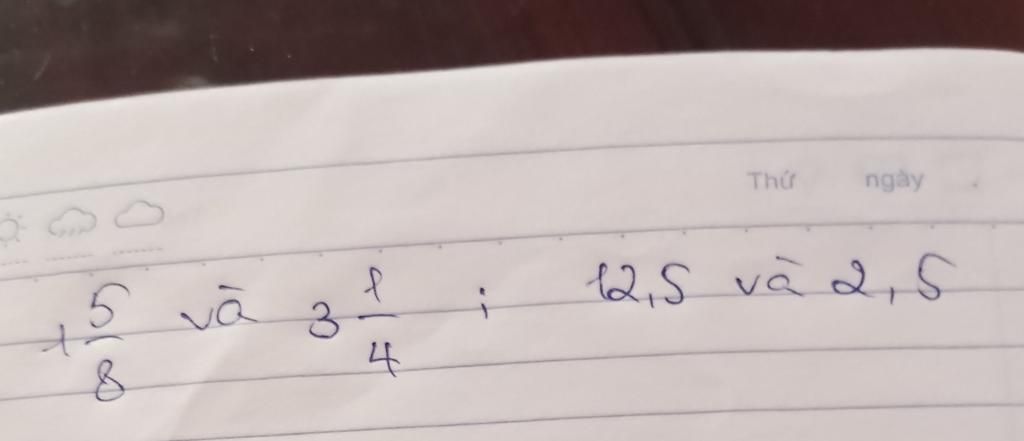 Thứ ngày
1 5/8 và 3 1/4 ; 12,5 và 2,5